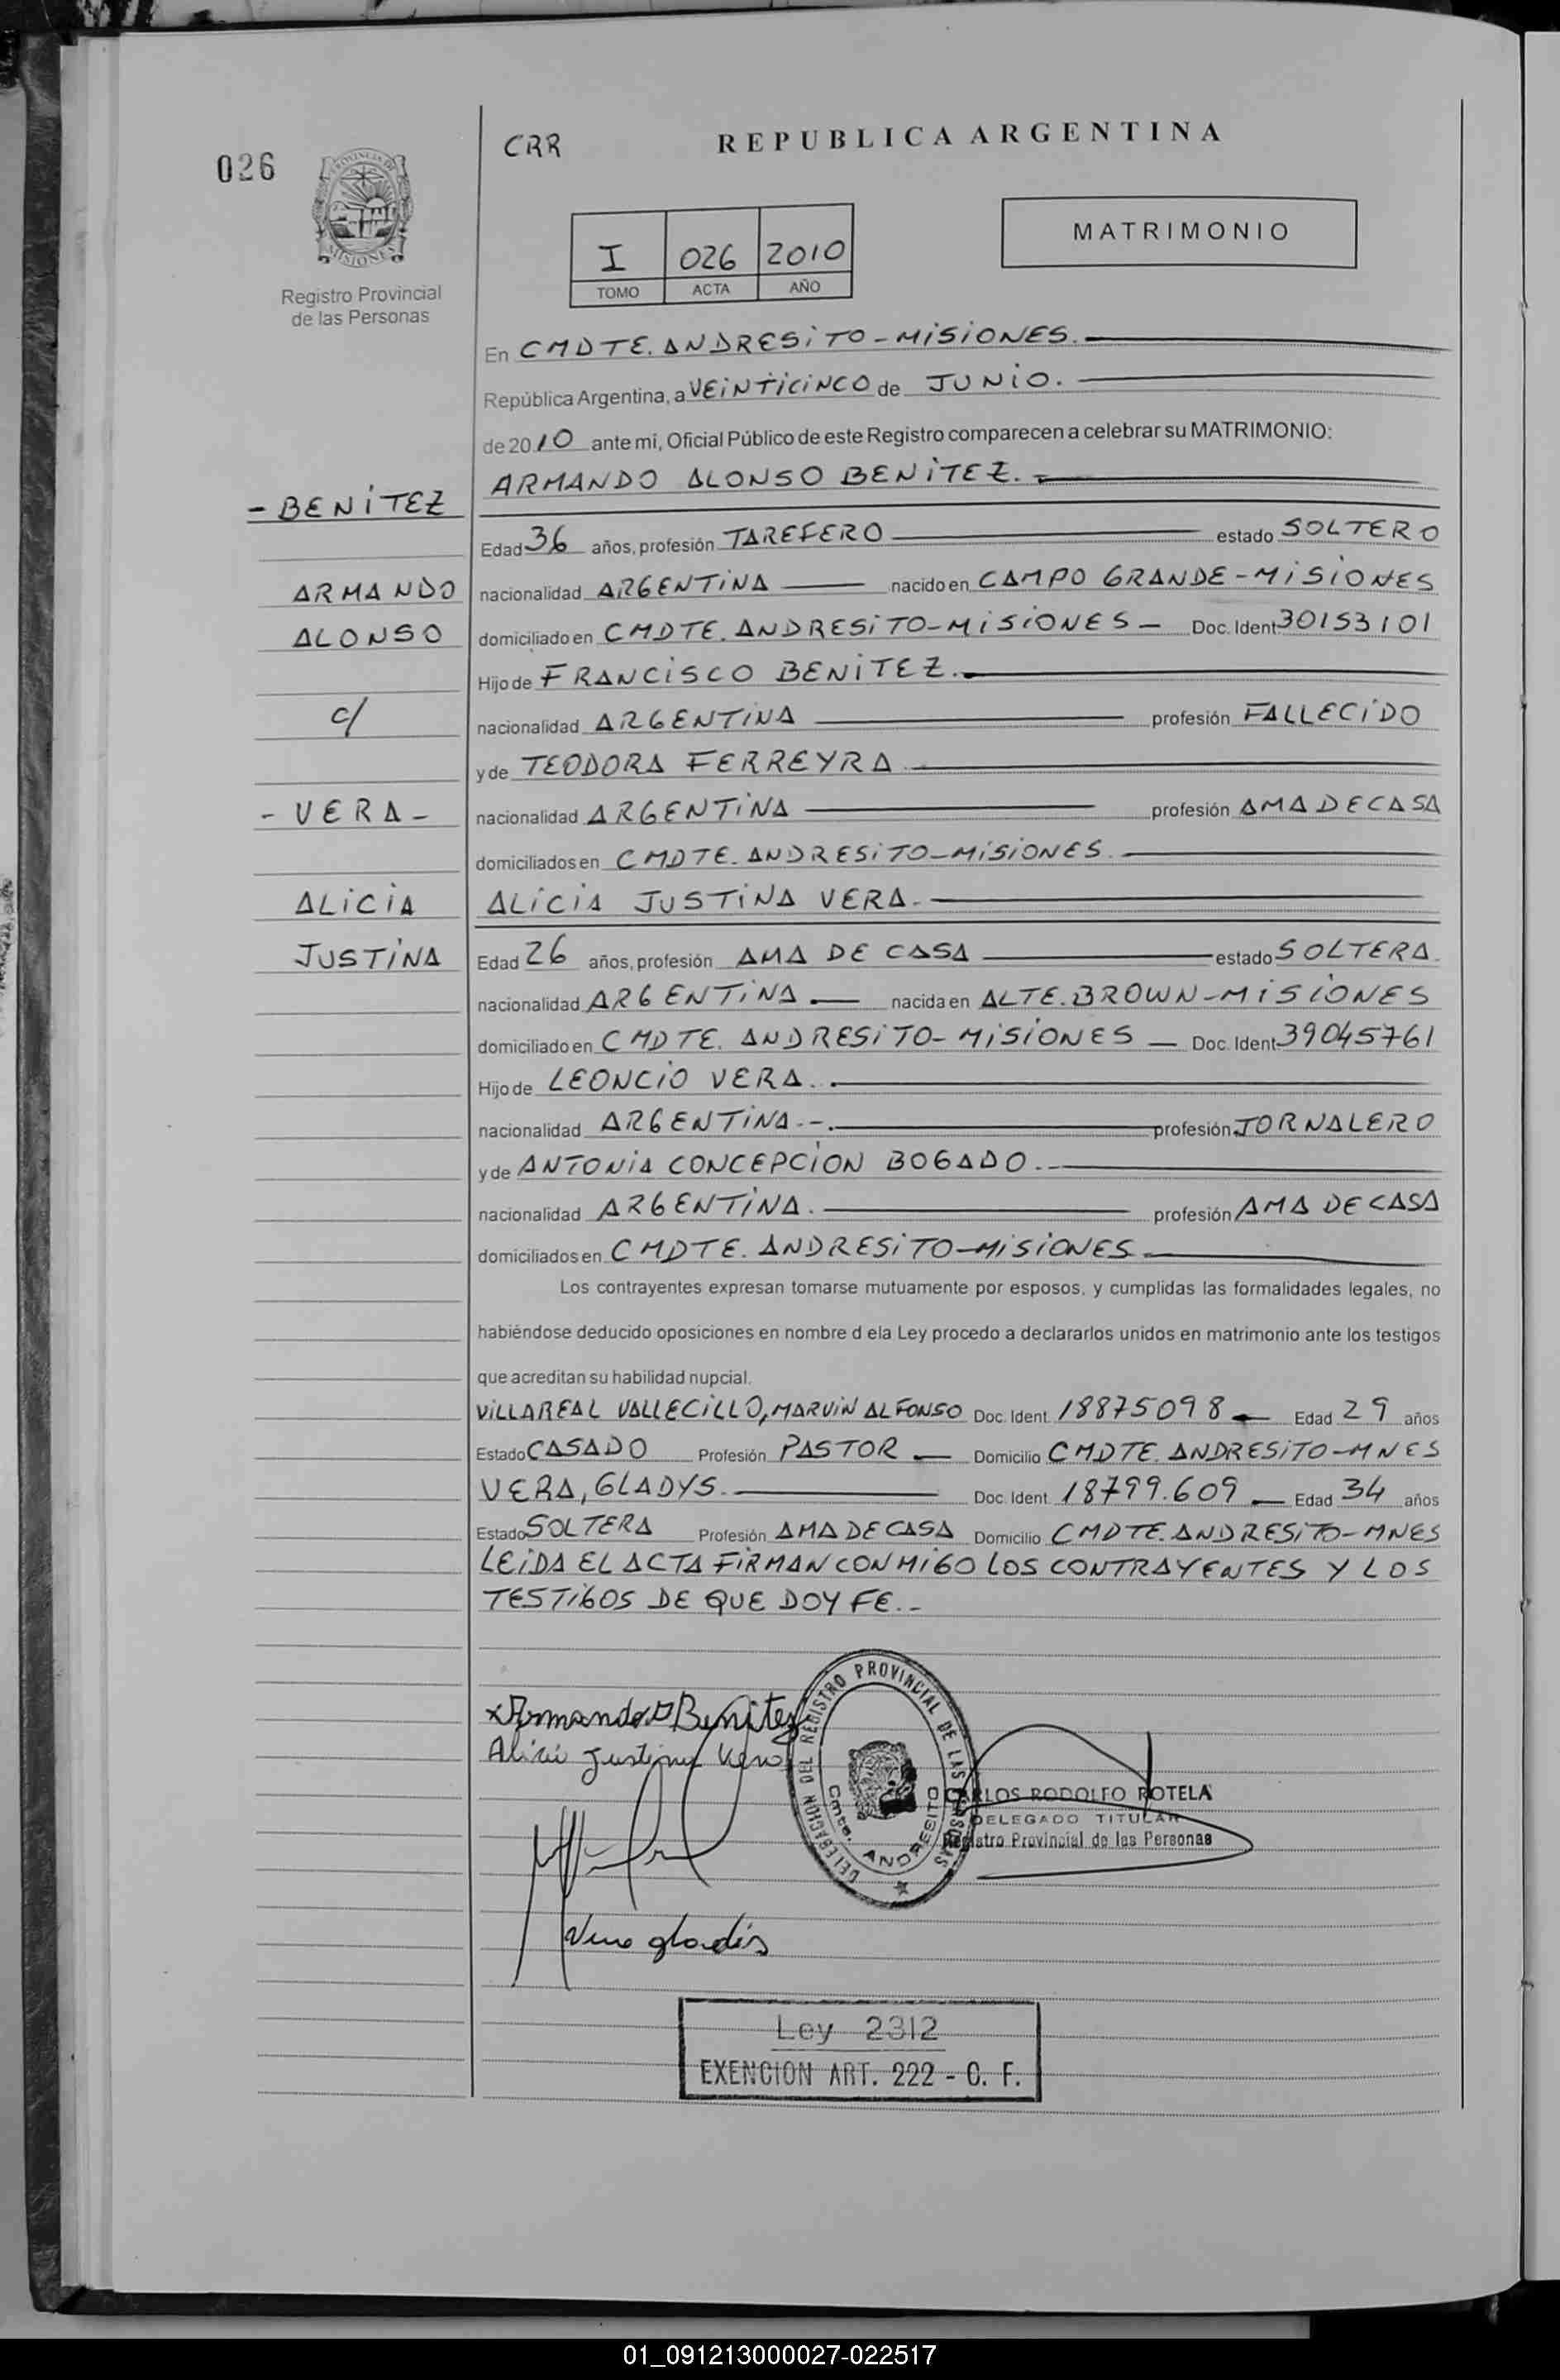 026
PROVINCIA DE
MISIONES
Registro Provincial
de las Personas
CRR
REPUBLICA ARGENTINA
I 026 2010
TOMO ACTA AÑO
MATRIMONIO
En CMDTE. ANDRESiTO - MiSiONES.
República Argentina, a VEiNTiCiNCO de JUNiO.
de 2010 ante mi, Oficial Público de este Registro comparecen a celebrar su MATRIMONIO:
ARMANDO ALONSO BENiTEZ.
- BENiTEZ
Edad 36 años, profesión TAREFERO estado SOLTERO
ARMANDO
nacionalidad ARGENTiNA nacido en CAMPO GRANDE - MiSiONES
ALONSO
domiciliado en CMDTE. ANDRESiTO - MiSiONES - Doc. Ident. 30153101
Hijo de FRANCiSCO BENiTEZ.
c/
nacionalidad ARGENTiNA profesión FALLECiDO
y de TEODORA FERREYRA
- VERA -
nacionalidad ARGENTiNA profesión AMA DE CASA
domiciliados en CMDTE. ANDRESiTO - MiSiONES.
ALiCiA
ALiCiA JUSTiNA VERA.
JUSTiNA
Edad 26 años, profesión AMA DE CASA estado SOLTERA.
nacionalidad ARGENTiNA nacida en ALTE. BROWN - MiSiONES
domiciliado en CMDTE. ANDRESiTO - MiSiONES - Doc. Ident. 39045761
Hijo de LEONCiO VERA.
nacionalidad ARGENTiNA.-. profesión JORNALERO
y de ANTONiA CONCEPCiON BOGADO.
nacionalidad ARGENTiNA. profesión AMA DE CASA
domiciliados en CMDTE. ANDRESiTO - MiSiONES
Los contrayentes expresan tomarse mutuamente por esposos, y cumplidas las formalidades legales, no
habiéndose deducido oposiciones en nombre d ela Ley procedo a declararlos unidos en matrimonio ante los testigos
que acreditan su habilidad nupcial.
ViLLAREAL VALLECiLLO, MARViN ALFONSO Doc. Ident. 18875098 Edad 29 años
Estado CASADO Profesión PASTOR Domicilio CMDTE. ANDRESiTO - MNES
VERA, GLADYS. Doc. Ident. 18799.609 Edad 34 años
Estado SOLTERA Profesión AMA DE CASA Domicilio CMDTE. ANDRESiTO - MNES
LEiDA EL ACTA FiRMAN CONMiGO LOS CONTRAYENTES Y LOS
TESTiGOS DE QUE DOY FE.-
Armando Benitez
Alicia Justina Vera
DELEGACION DEL REGISTRO PROVINCIAL DE LAS PERSONAS
Cmte. ANDRESITO
CARLOS RODOLFO ROTELA
DELEGADO TITULAR
Registro Provincial de las Personas
Vera gladis
Ley 2312
EXENCION ART. 222 - C. F.
01_091213000027-022517